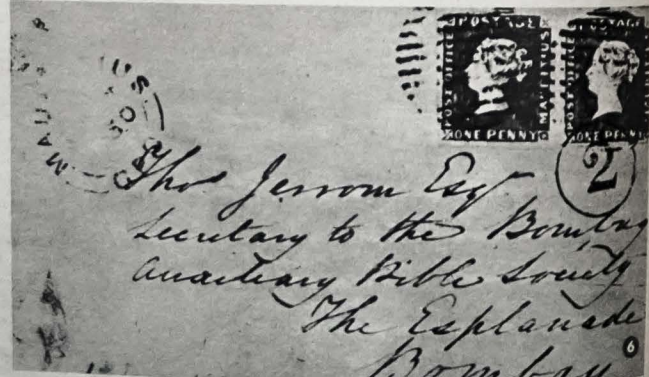 POSTAGE
POST OFFICE
MAURITIUS
ONE PENNY
POSTAGE
POST OFFICE
ONE PENNY
2
Thos Jerrom Esqr
Secretary to the Bombay
Auxiliary Bible Society
The Esplanade
Bombay
6